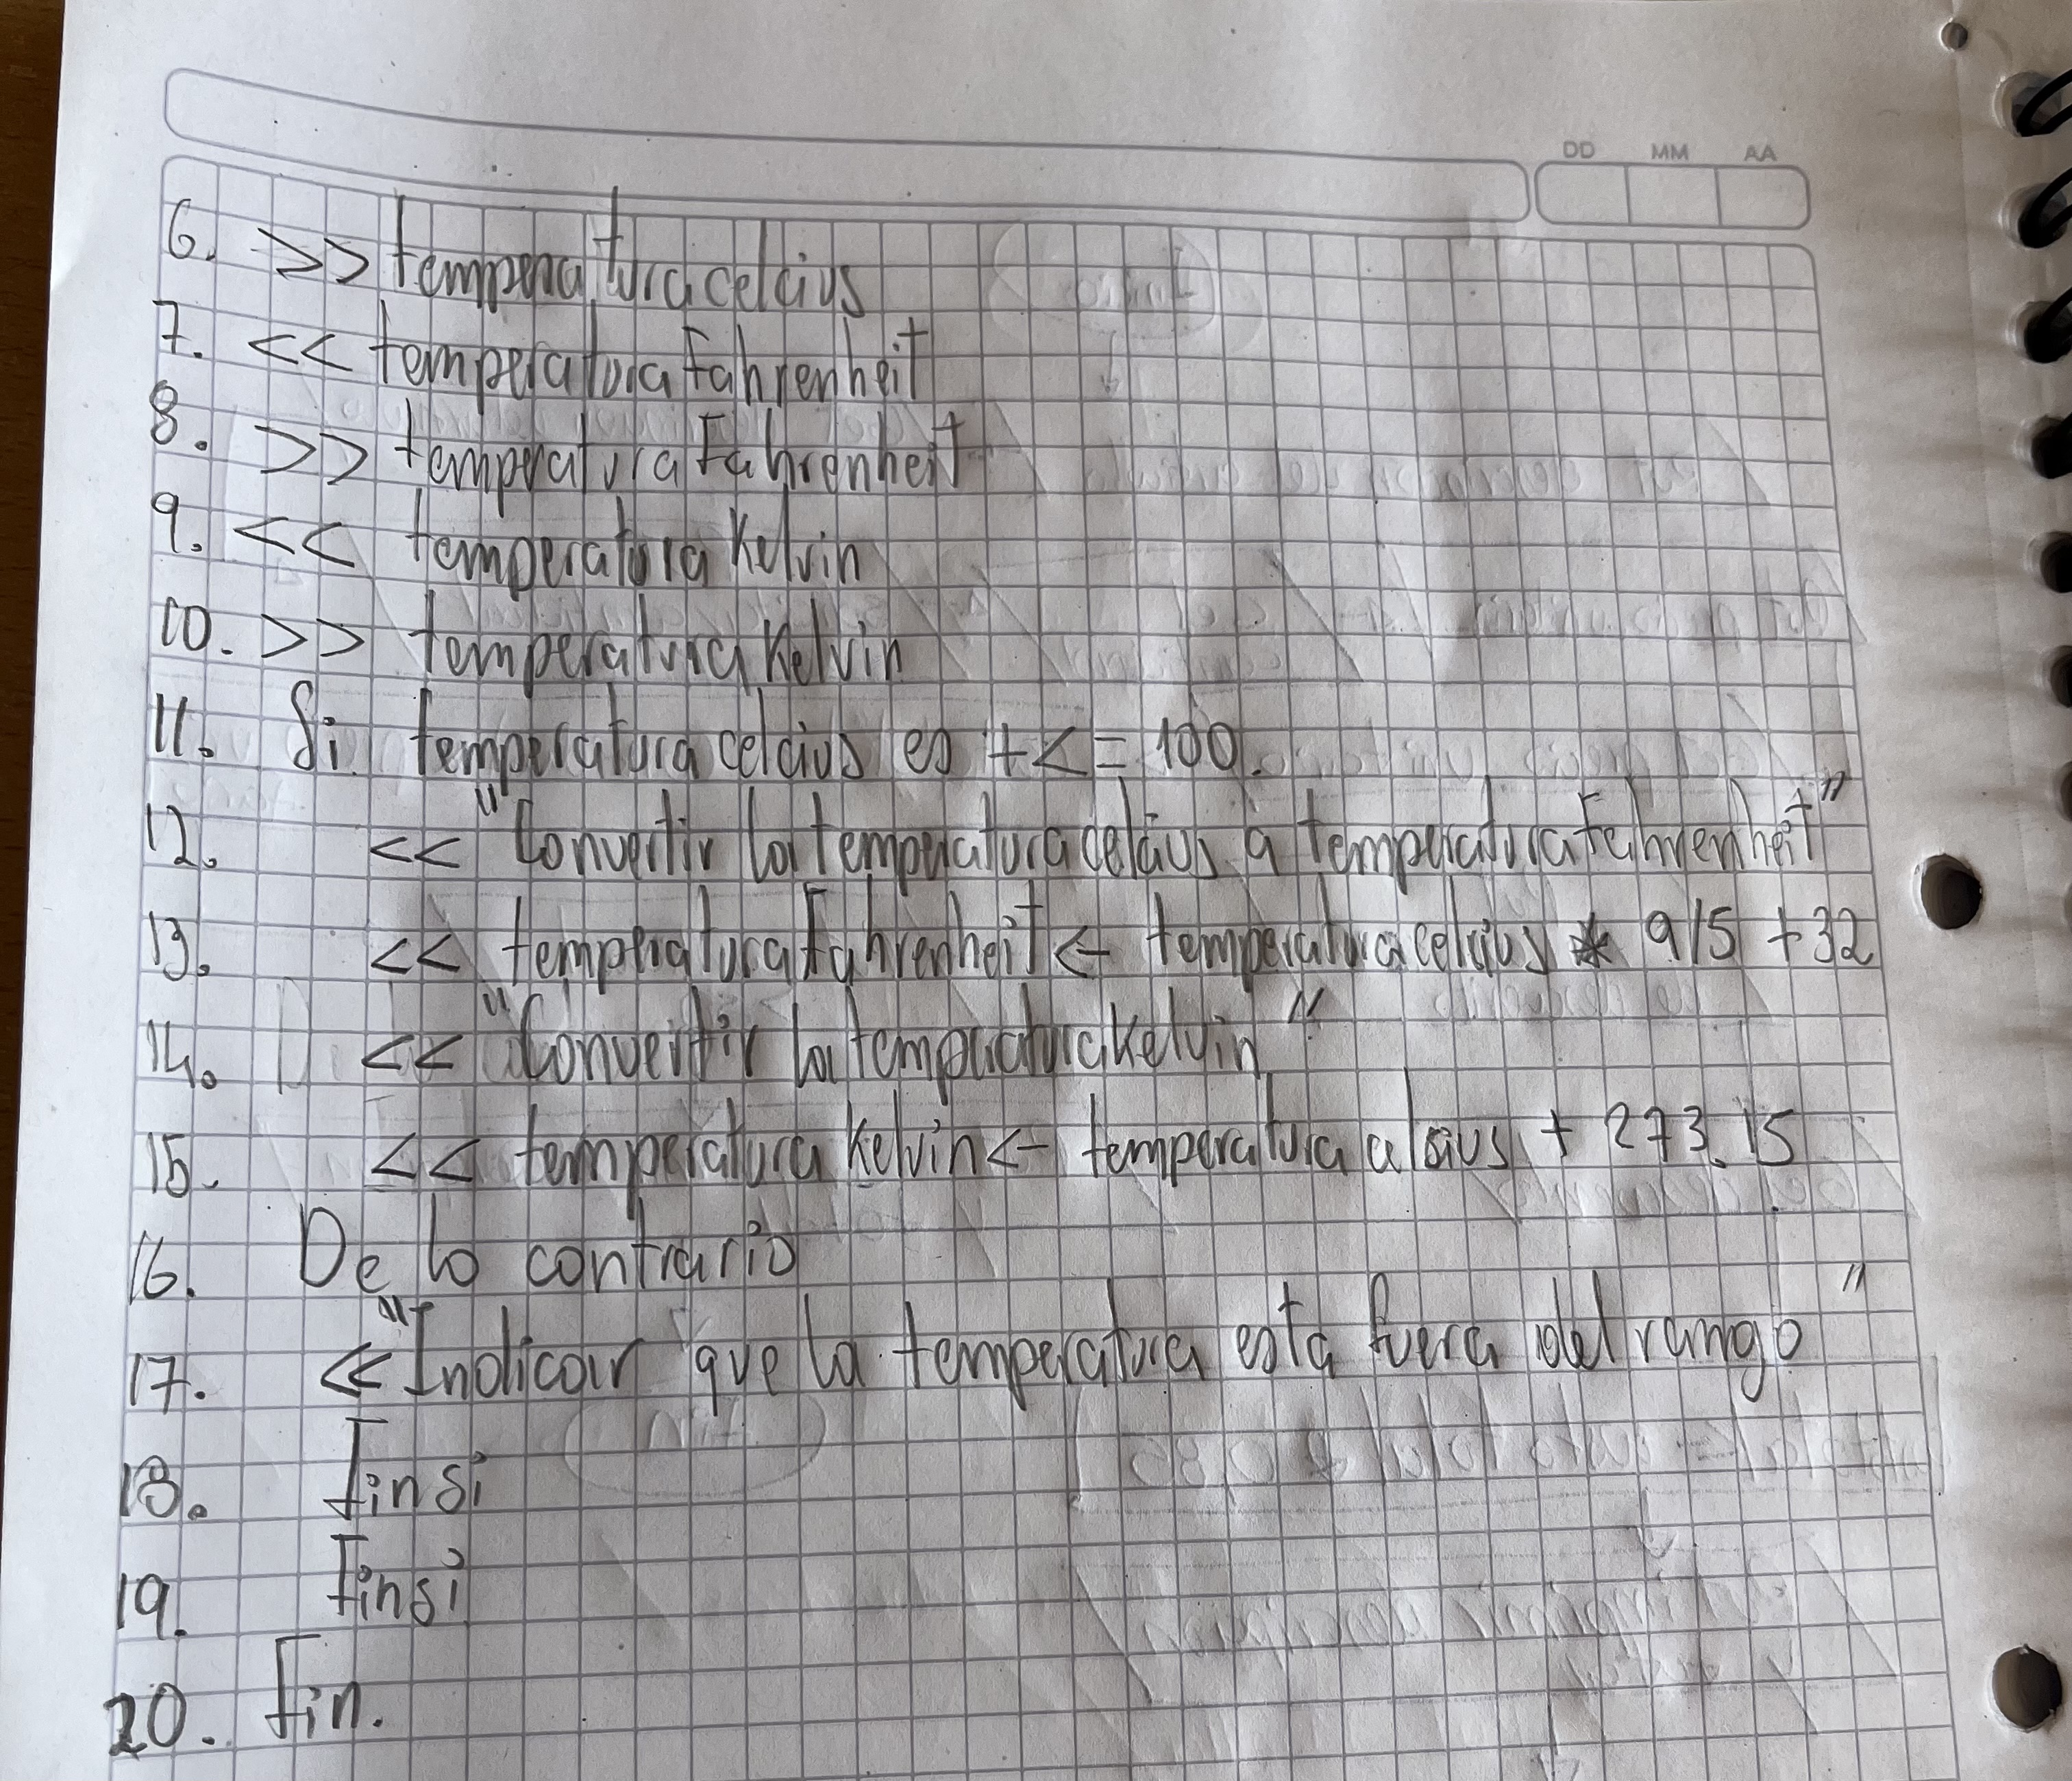 DD MM AA
6. >> temperatura celcius
7. << temperatura Fahrenheit
8. >> temperatura Fahrenheit
9. << temperatura Kelvin
10. >> temperatura Kelvin
11. Si temperatura celcius es + <= 100.
12. << "Convertir la temperatura celcius a temperatura Fahrenheit"
13. << temperatura Fahrenheit <- temperatura celcius * 9/5 + 32
14. << "Convertir la temperatura Kelvin"
15. << temperatura Kelvin <- temperatura celsius + 273.15
16. De lo contrario
17. << "Indicar que la temperatura esta fuera del rango"
18. finsi
19. Finsi
20. fin.